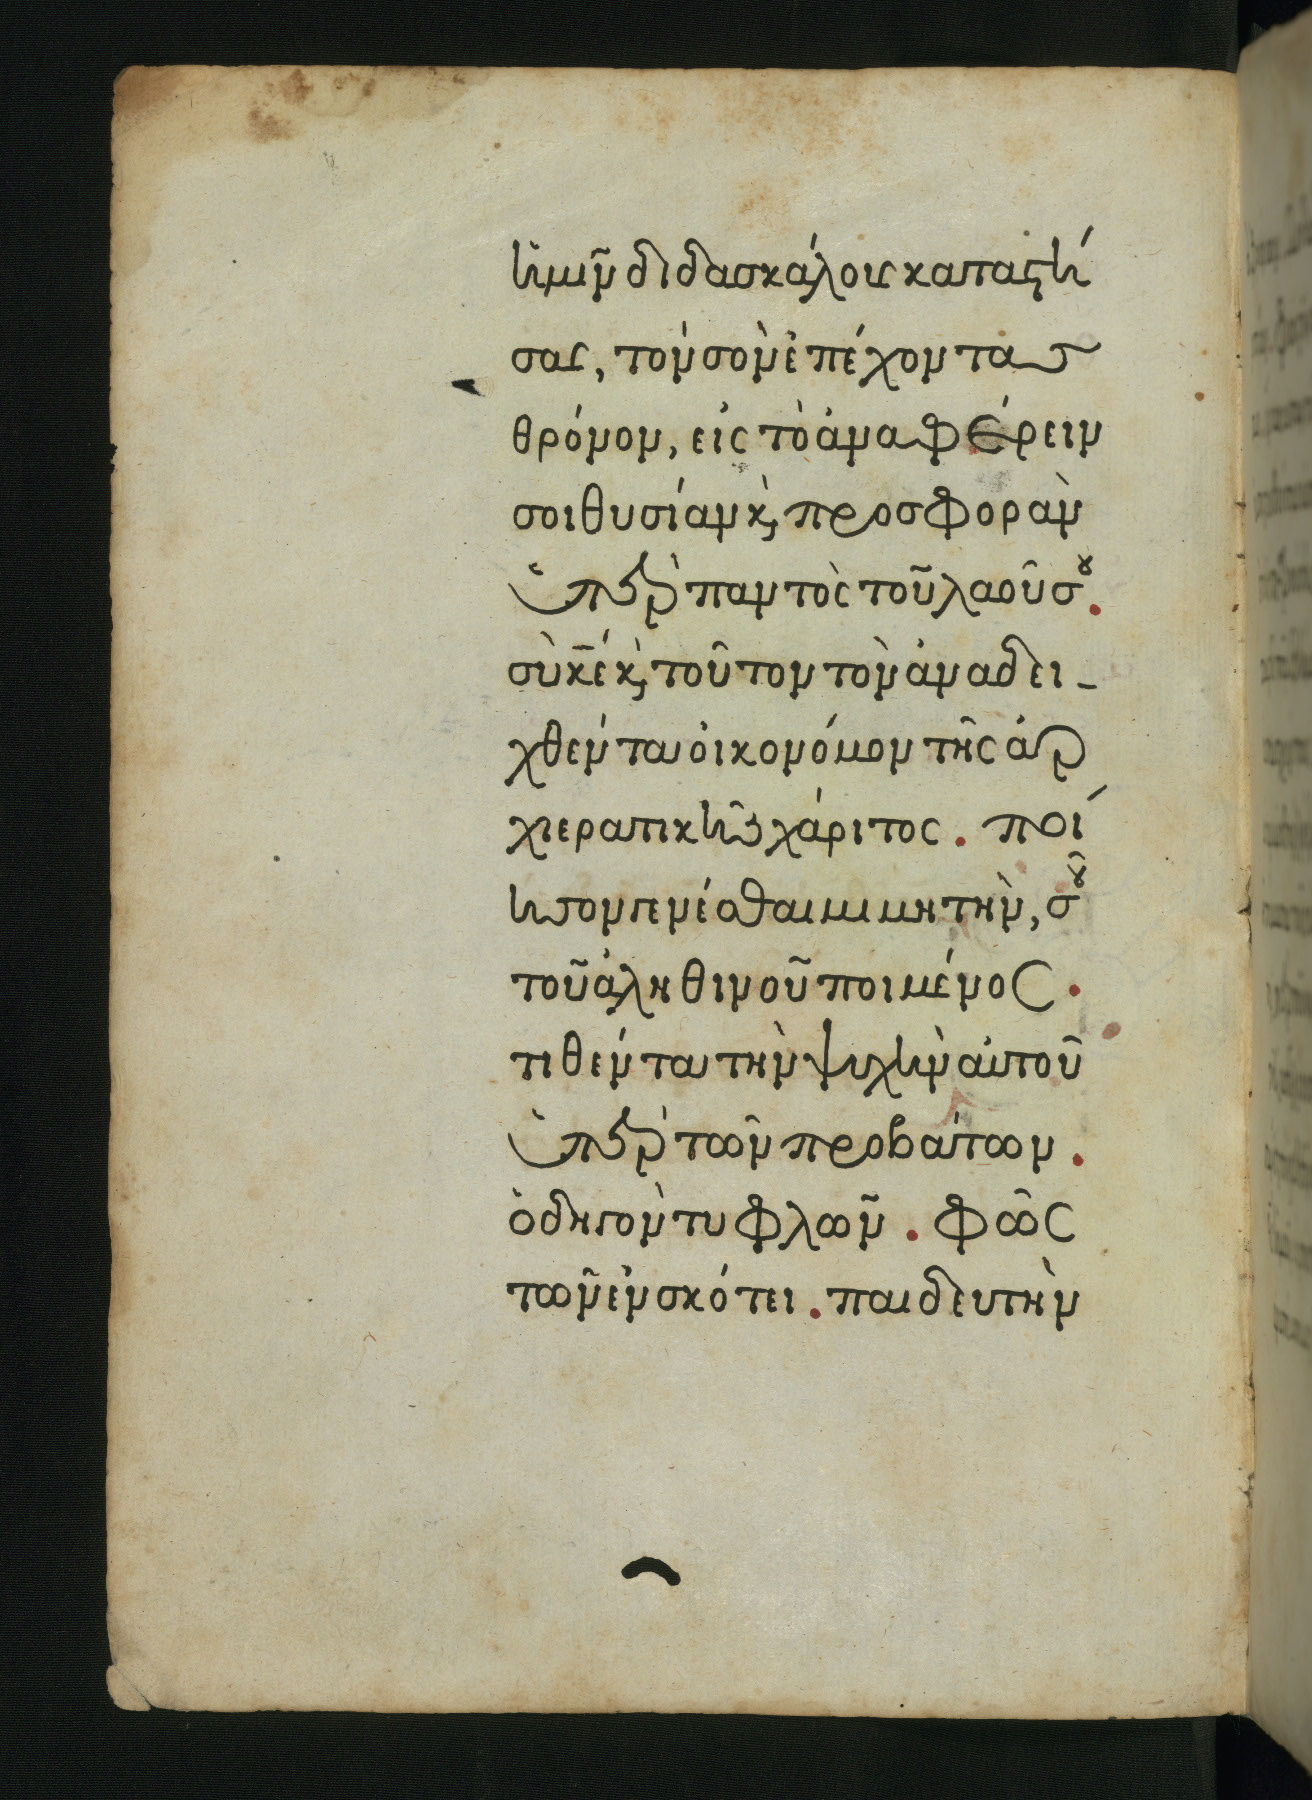 ἡμῖν διδασκάλους καταστή
σας, τὸν σὸν ἐπέχοντας
θρόνον, εἰς τὸ ἀναφέρειν
σοι θυσίαν κ̀ προσφορὰν
ὑπὲρ παντὸς τοῦ λαοῦ σου.
σὺ κε̄ κ̀ τοῦτον τὸν ἀναδει-
χθέντα οἰκονόμον τῆς ἀρ
χιερατικῆς χάριτος. ποί
ησον γενέσθαι μιμητήν, σοῦ
τοῦ ἀληθινοῦ ποιμένος.
τιθέντα τὴν ψυχὴν αὐτοῦ
ὑπὲρ τῶν προβάτων.
ὁδηγὸν τυφλῶν. φῶς
τῶν ἐν σκότει. παιδευτὴν